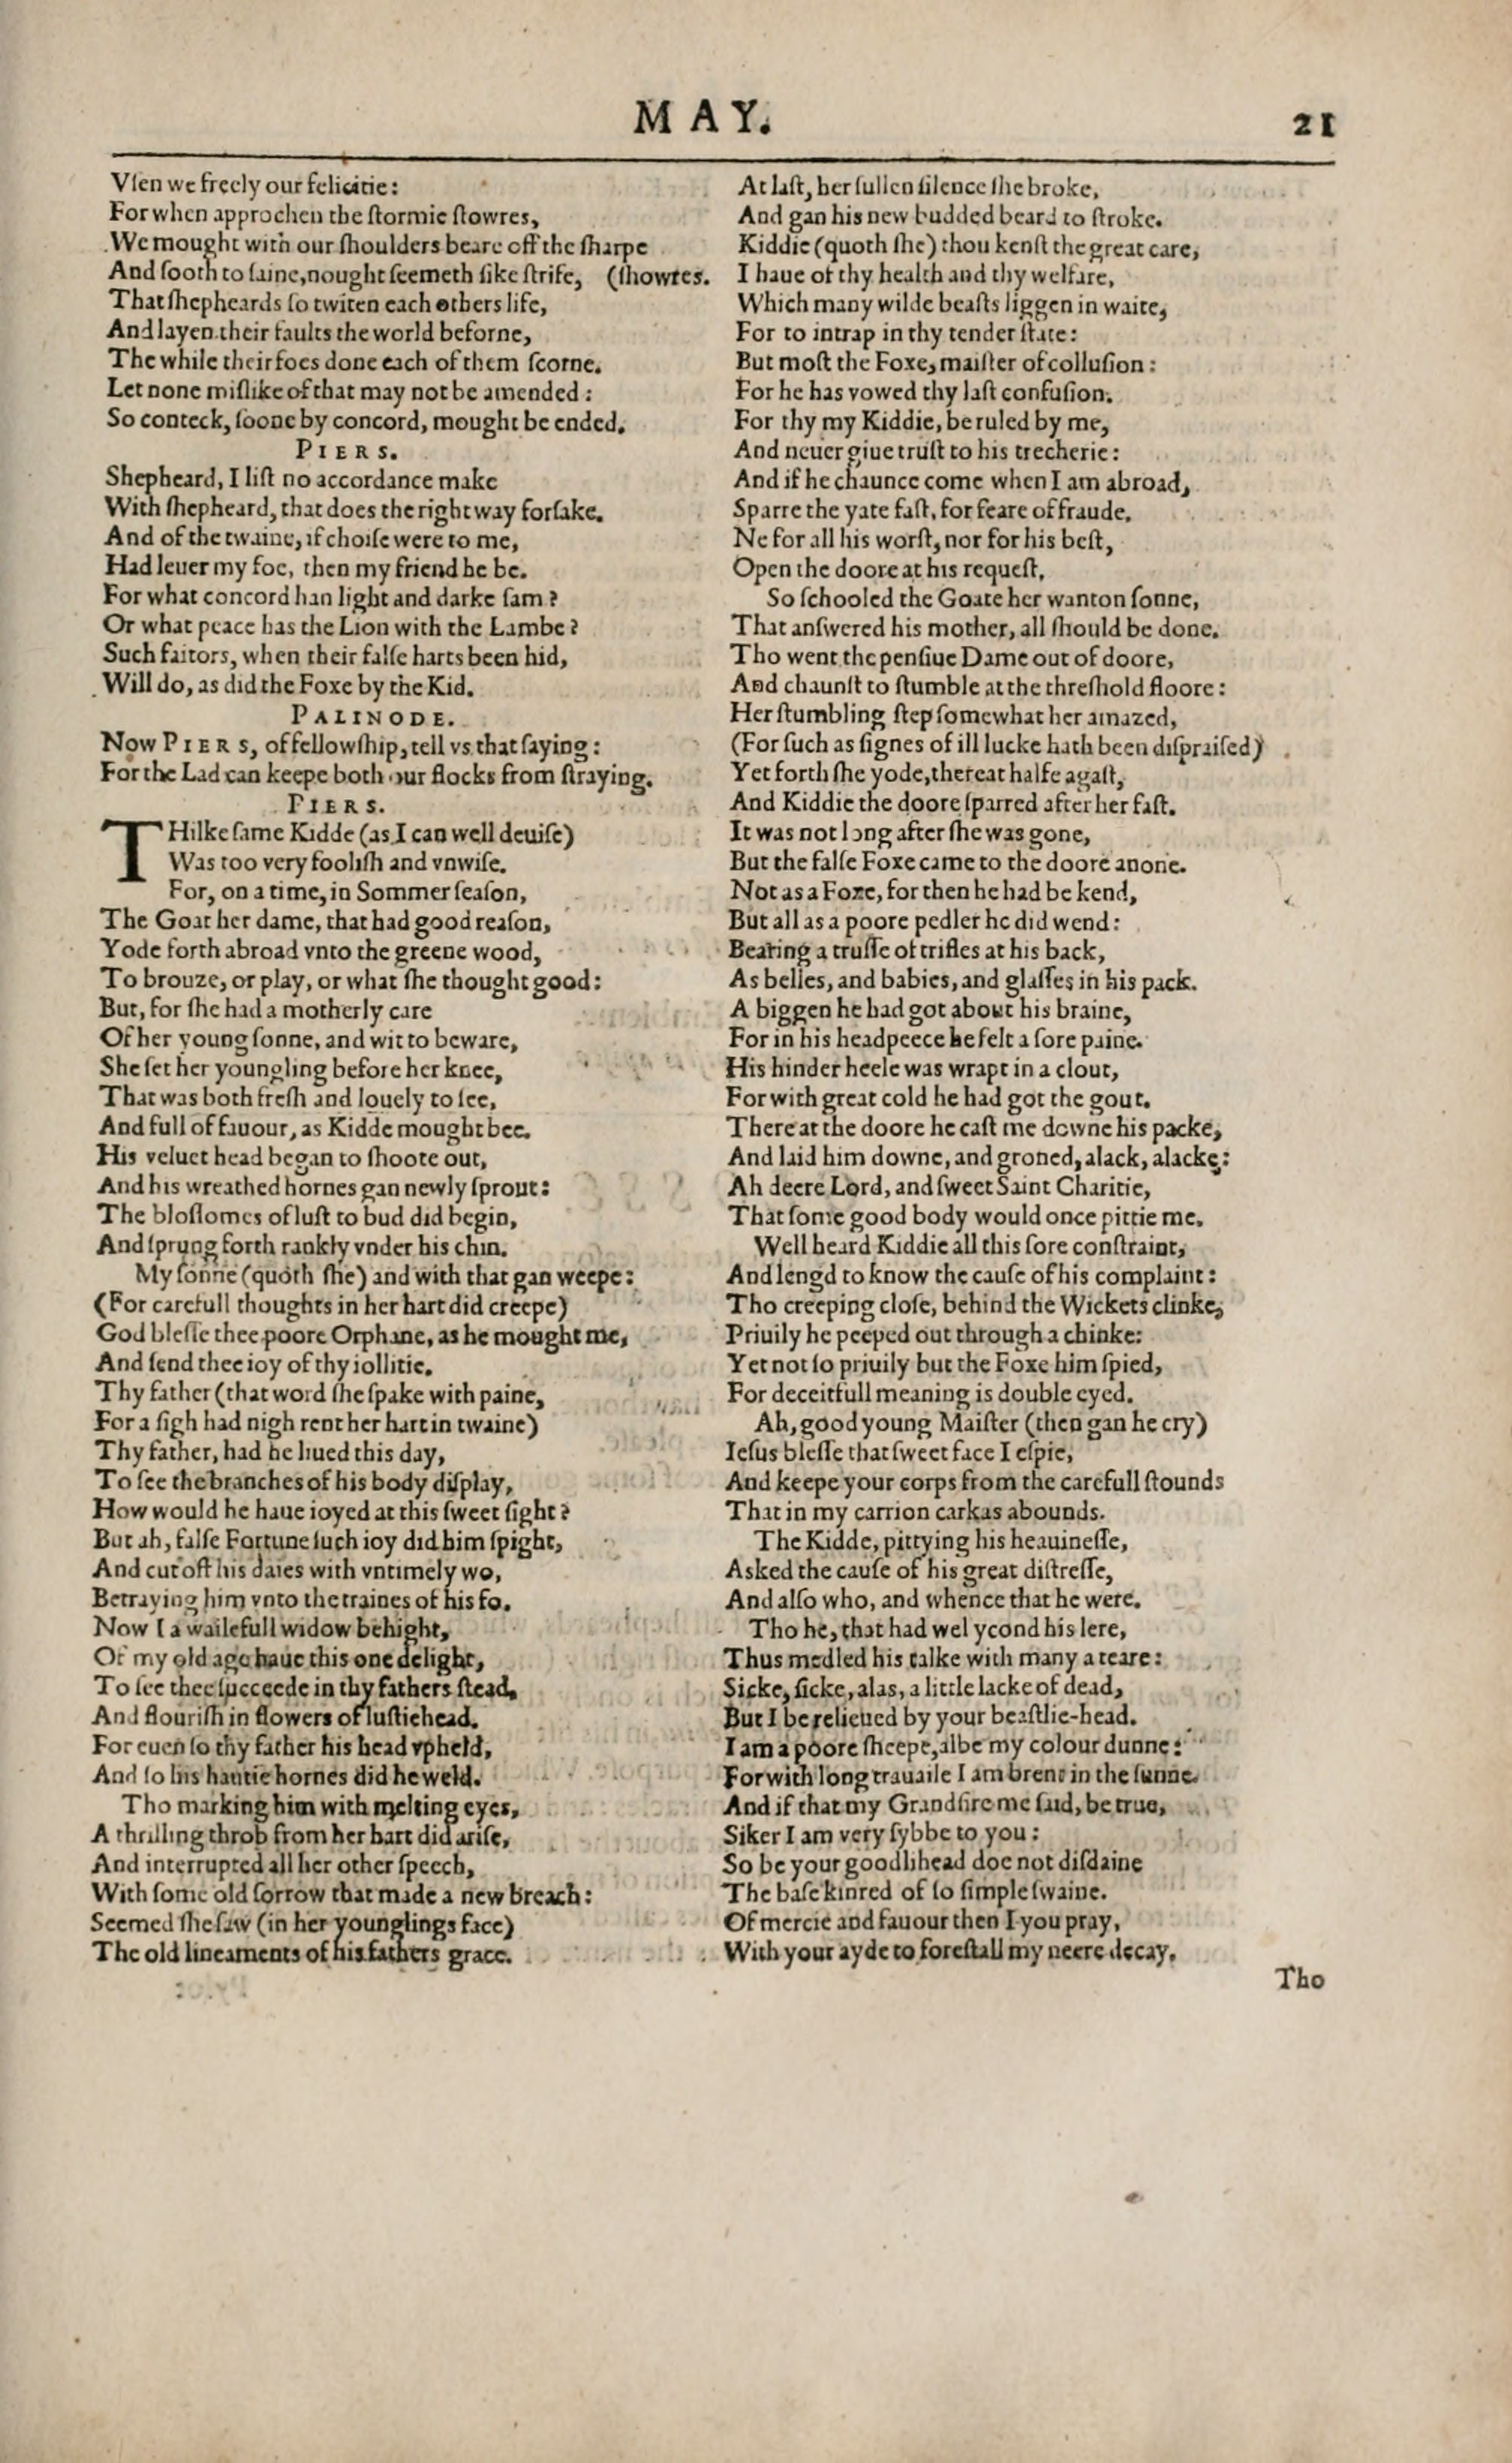 MAY.
21
Vſen we freely our felicitie:
For when approchen the ſtormie ſtowres,
We mought with our ſhoulders beare off the ſharpe
And ſooth to ſaine, nought ſeemeth ſike ſtrife, (ſhowres.
That ſhepheards ſo twiten each others life,
And layen their faults the world beforne,
The while their foes done each of them ſcorne.
Let none miſlike of that may not be amended:
So conteck, ſoone by concord, mought be ended.
PIERS.
Shepheard, I liſt no accordance make
With ſhepheard, that does the right way forſake.
And of the twaine, if choiſe were to me,
Had leuer my foe, then my friend he be.
For what concord han light and darke ſam?
Or what peace has the Lion with the Lambe?
Such faitors, when their falſe harts been hid,
Will do, as did the Foxe by the Kid.
PALINODE.
Now PIERS, of fellowſhip, tell vs that ſaying:
For the Lad can keepe both our flocks from ſtraying.
PIERS.
THilke ſame Kidde (as I can well deuiſe)
Was too very fooliſh and vnwiſe.
For, on a time, in Sommer ſeaſon,
The Goat her dame, that had good reaſon,
Yode forth abroad vnto the greene wood,
To brouze, or play, or what ſhe thought good:
But, for ſhe had a motherly care
Of her young ſonne, and wit to beware,
She ſet her youngling before her knee,
That was both freſh and louely to ſee,
And full of fauour, as Kidde mought bee.
His veluet head began to ſhoote out,
And his wreathed hornes gan newly ſprout:
The bloſſomes of luſt to bud did begin,
And ſprung forth rankly vnder his chin.
My ſonne (quoth ſhe) and with that gan weepe:
(For carefull thoughts in her hart did creepe)
God bleſſe thee poore Orphane, as he mought me,
And ſend thee ioy of thy iollitie.
Thy father (that word ſhe ſpake with paine,
For a ſigh had nigh rent her hart in twaine)
Thy father, had he liued this day,
To ſee the branches of his body diſplay,
How would he haue ioyed at this ſweet ſight?
But ah, falſe Fortune ſuch ioy did him ſpight,
And cut off his daies with vntimely wo,
Betraying him vnto the traines of his fo.
Now I a wailefull widow behight,
Of my old age haue this one delight,
To ſee thee ſucceede in thy fathers ſtead,
And flouriſh in flowers of luſtiehead.
For euen ſo thy father his head vpheld,
And ſo his hautie hornes did he weld.
Tho marking him with melting eyes,
A thrilling throb from her hart did ariſe,
And interrupted all her other ſpeech,
With ſome old ſorrow that made a new breach:
Seemed ſhe ſaw (in her younglings face)
The old lineaments of his fathers grace.
At laſt, her ſullen ſilence ſhe broke,
And gan his new budded beard to ſtroke.
Kiddie (quoth ſhe) thou kenſt the great care,
I haue of thy health and thy welfare,
Which many wilde beaſts liggen in waite,
For to intrap in thy tender ſtate:
But moſt the Foxe, maiſter of colluſion:
For he has vowed thy laſt confuſion.
For thy my Kiddie, be ruled by me,
And neuer giue truſt to his trecherie:
And if he chaunce come when I am abroad,
Sparre the yate faſt, for feare of fraude.
Ne for all his worſt, nor for his beſt,
Open the doore at his requeſt.
So ſchooled the Goate her wanton ſonne,
That anſwered his mother, all ſhould be done.
Tho went the penſiue Dame out of doore,
And chaunſt to ſtumble at the threſhold floore:
Her ſtumbling ſtep ſomewhat her amazed,
(For ſuch as ſignes of ill lucke hath been diſpraiſed)
Yet forth ſhe yode, thereat halfe agaſt,
And Kiddie the doore ſparred after her faſt.
It was not long after ſhe was gone,
But the falſe Foxe came to the doore anone.
Not as a Foxe, for then he had be kend,
But all as a poore pedler he did wend:
Bearing a truſſe of trifles at his back,
As belles, and babies, and glaſſes in his pack.
A biggen he had got about his braine,
For in his headpeece he felt a ſore paine.
His hinder heele was wrapt in a clout,
For with great cold he had got the gout.
There at the doore he caſt me downe his packe,
And laid him downe, and groned, alack, alacke:
Ah deere Lord, and ſweet Saint Charitie,
That ſome good body would once pittie me.
Well heard Kiddie all this ſore conſtraint,
And lengd to know the cauſe of his complaint:
Tho creeping cloſe, behind the Wickets clinke,
Priuily he peeped out through a chinke:
Yet not ſo priuily but the Foxe him ſpied,
For deceitfull meaning is double eyed.
Ah, good young Maiſter (then gan he cry)
Ieſus bleſſe that ſweet face I eſpie,
And keepe your corps from the carefull ſtounds
That in my carrion carkas abounds.
The Kidde, pittying his heauineſſe,
Asked the cauſe of his great diſtreſſe,
And alſo who, and whence that he were.
Tho he, that had wel ycond his lere,
Thus medled his talke with many a teare:
Sicke, ſicke, alas, a little lacke of dead,
But I be relieued by your beaſtlie-head.
I am a poore ſheepe, albe my colour dunne:
For with long trauaile I am brent in the ſunne.
And if that my Grandſire me ſaid, be true,
Siker I am very ſybbe to you:
So be your goodlihead doe not diſdaine
The baſe kinred of ſo ſimple ſwaine.
Of mercie and fauour then I you pray,
With your ayde to foreſtall my neere decay.
Tho